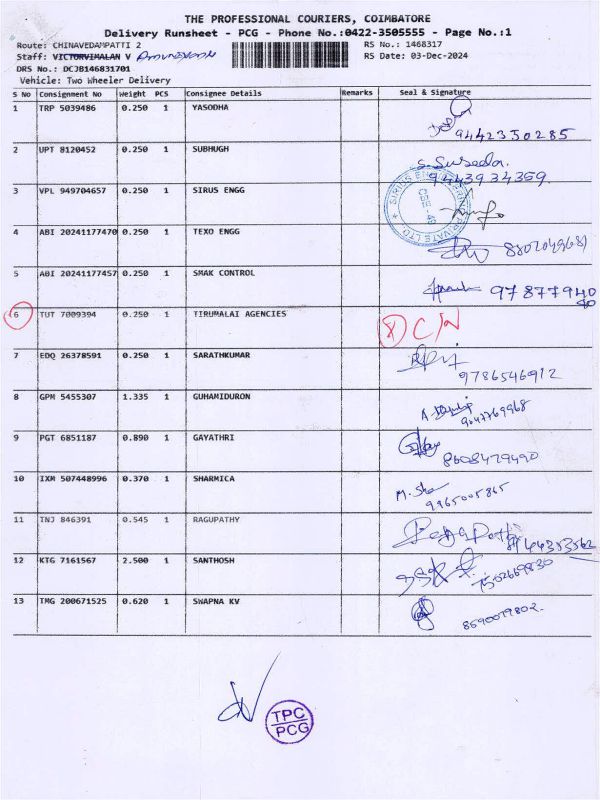 THE PROFESSIONAL COURIERS, COIMBATORE
Delivery Runsheet - PCG - Phone No.:0422-3505555 - Page No.:1
Route: CHINAVEDAMPATTI 2 RS No.: 1468317
Staff: VICTORVIMALAN V RS Date: 03-Dec-2024
DRS No.: DCJB146831701
Vehicle: Two Wheeler Delivery
S No Consignment No Weight PCS Consignee Details Remarks Seal & Signature
1 TRP 5039486 0.250 1 YASODHA
9442350285
2 UPT 8120452 0.250 1 SUBHUGH
9443934359
3 VPL 949704657 0.250 1 SIRUS ENGG
4 ABI 20241177470 0.250 1 TEXO ENGG
5 ABI 20241177457 0.250 1 SMAK CONTROL
6 TUT 7009394 0.250 1 TIRUMALAI AGENCIES
7 EDQ 26378591 0.250 1 SARATHKUMAR
9786546912
8 GPM 5455307 1.335 1 GUHAMIDURON
9 PGT 6851187 0.890 1 GAYATHRI
8608479490
10 IXM 507448996 0.370 1 SHARMICA
9965005865
11 TNJ 846391 0.545 1 RAGUPATHY
12 KTG 7161567 2.500 1 SANTHOSH
7502669830
13 TMG 200671525 0.620 1 SWAPNA KV
TPC
PCG